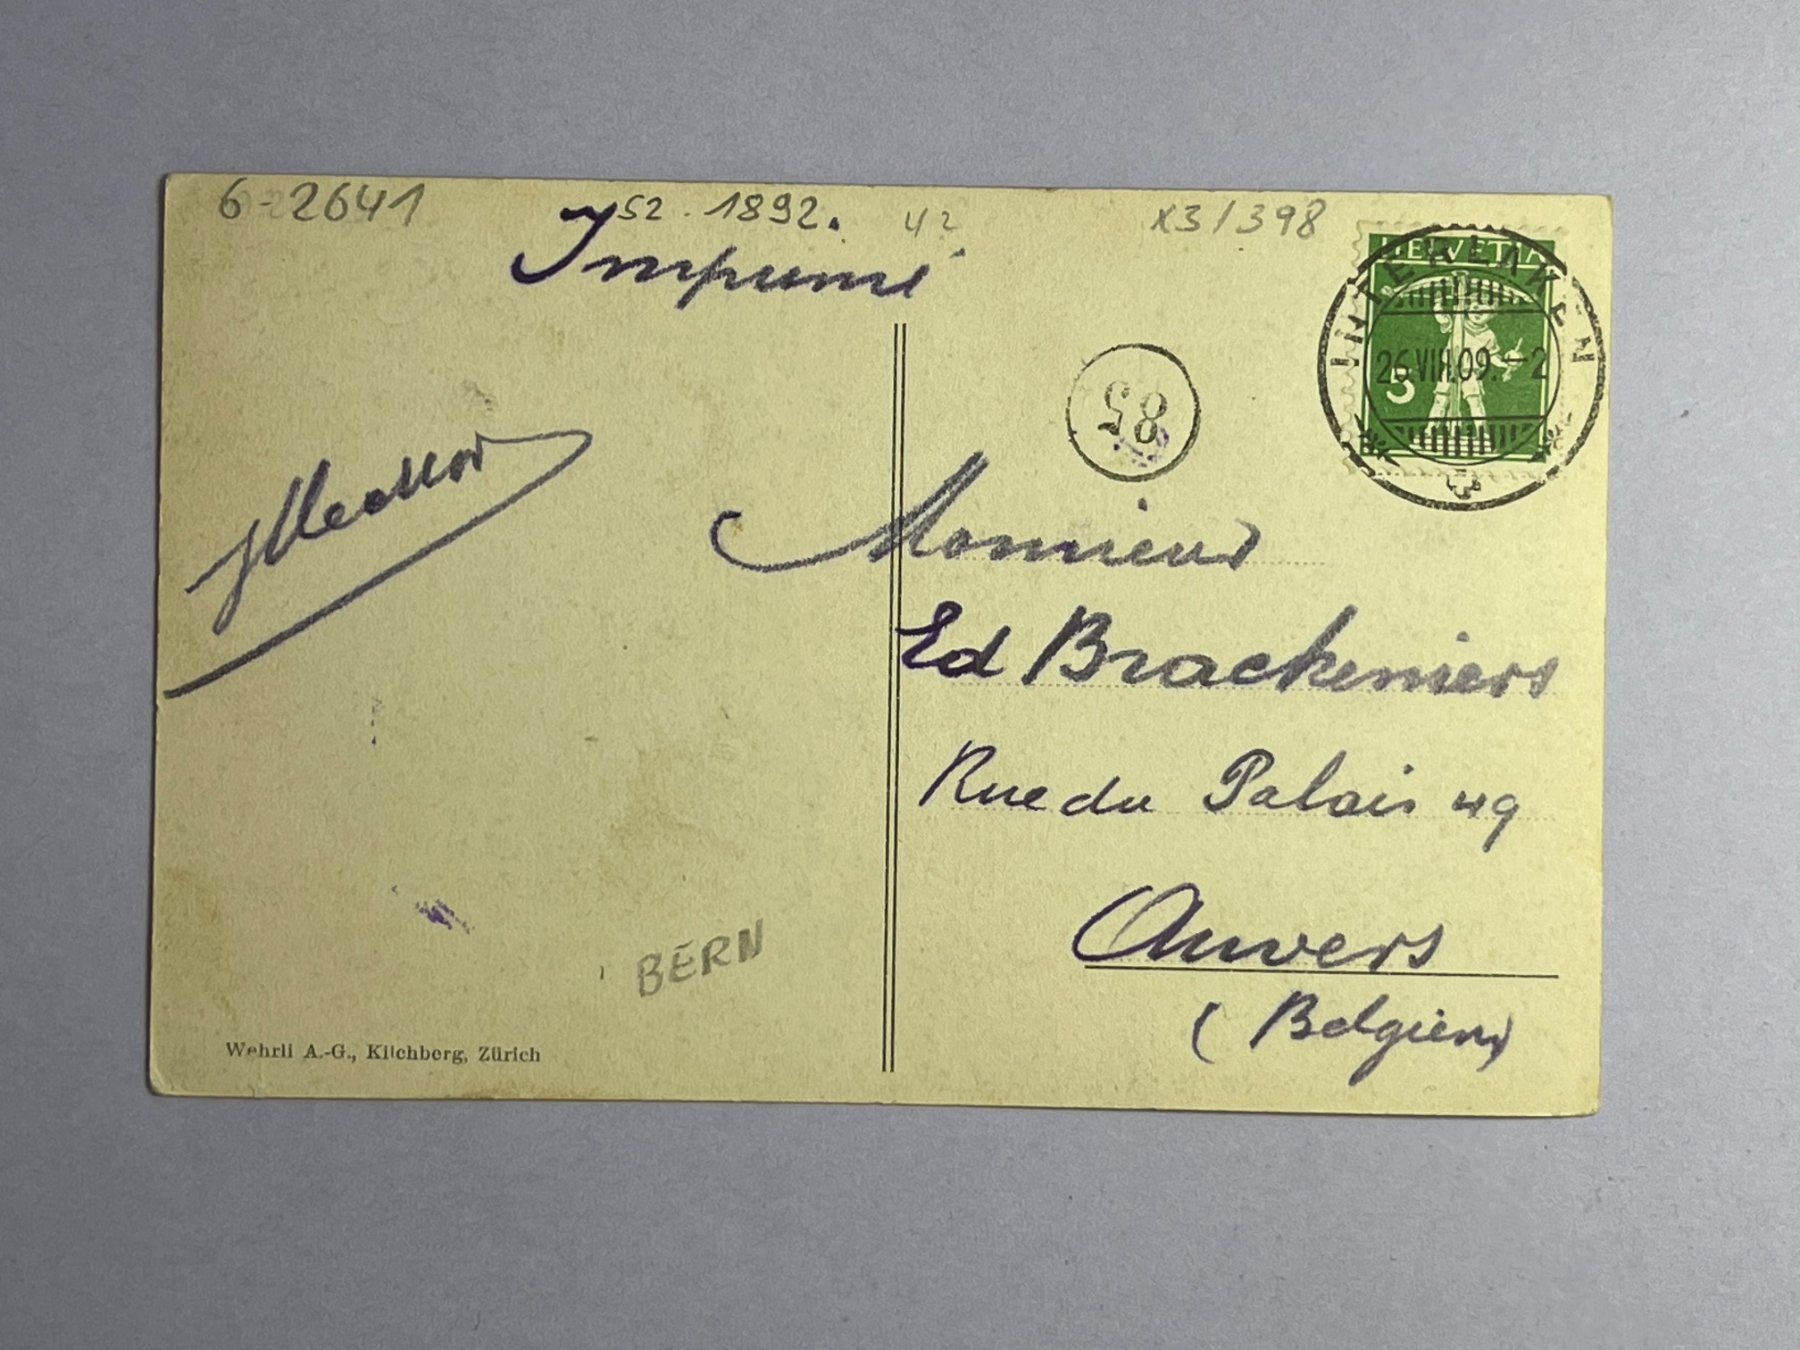 6-2641
S2. 1892.
42
X3/398
Imprimé
HELVETIA
5
INTERLAKEN
26.VIII.09.-2
85
Monsieur
Ed Brackeniers
Rue du Palais 49
Anvers
(Belgien)
BERN
Wehrli A.-G., Kilchberg, Zürich